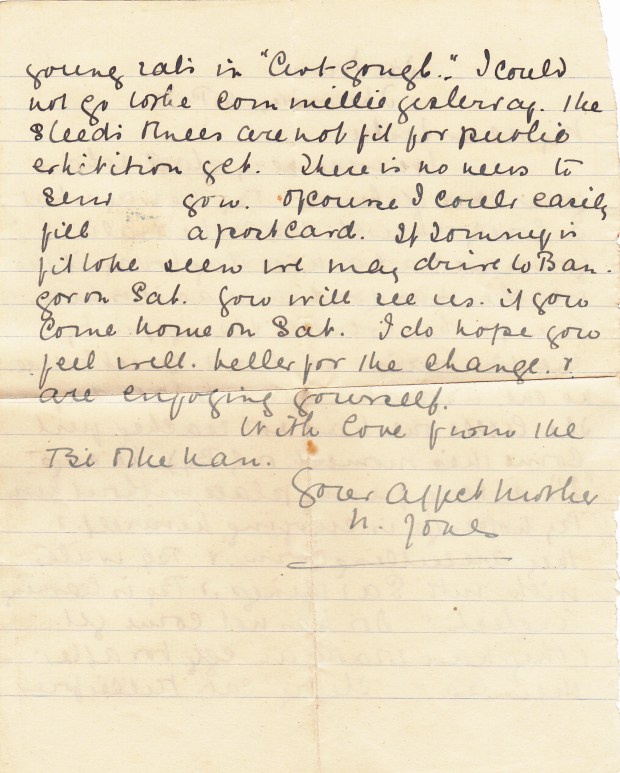 young rats in "Cwt gongl." I could
not go to the committee yesterday. The
Steeds Knees are not fit for public
exhibition yet. There is no news to
send you. Of course I could easily
fill a postcard. If Tommy is
fit to be seen we may drive to Ban-
gor on Sat. You will see us. if you
come home on Sat. I do hope you
feel well. better for the change. &
are enjoying yourself.
With love from the
the
Your Affect Mother
N. Jones